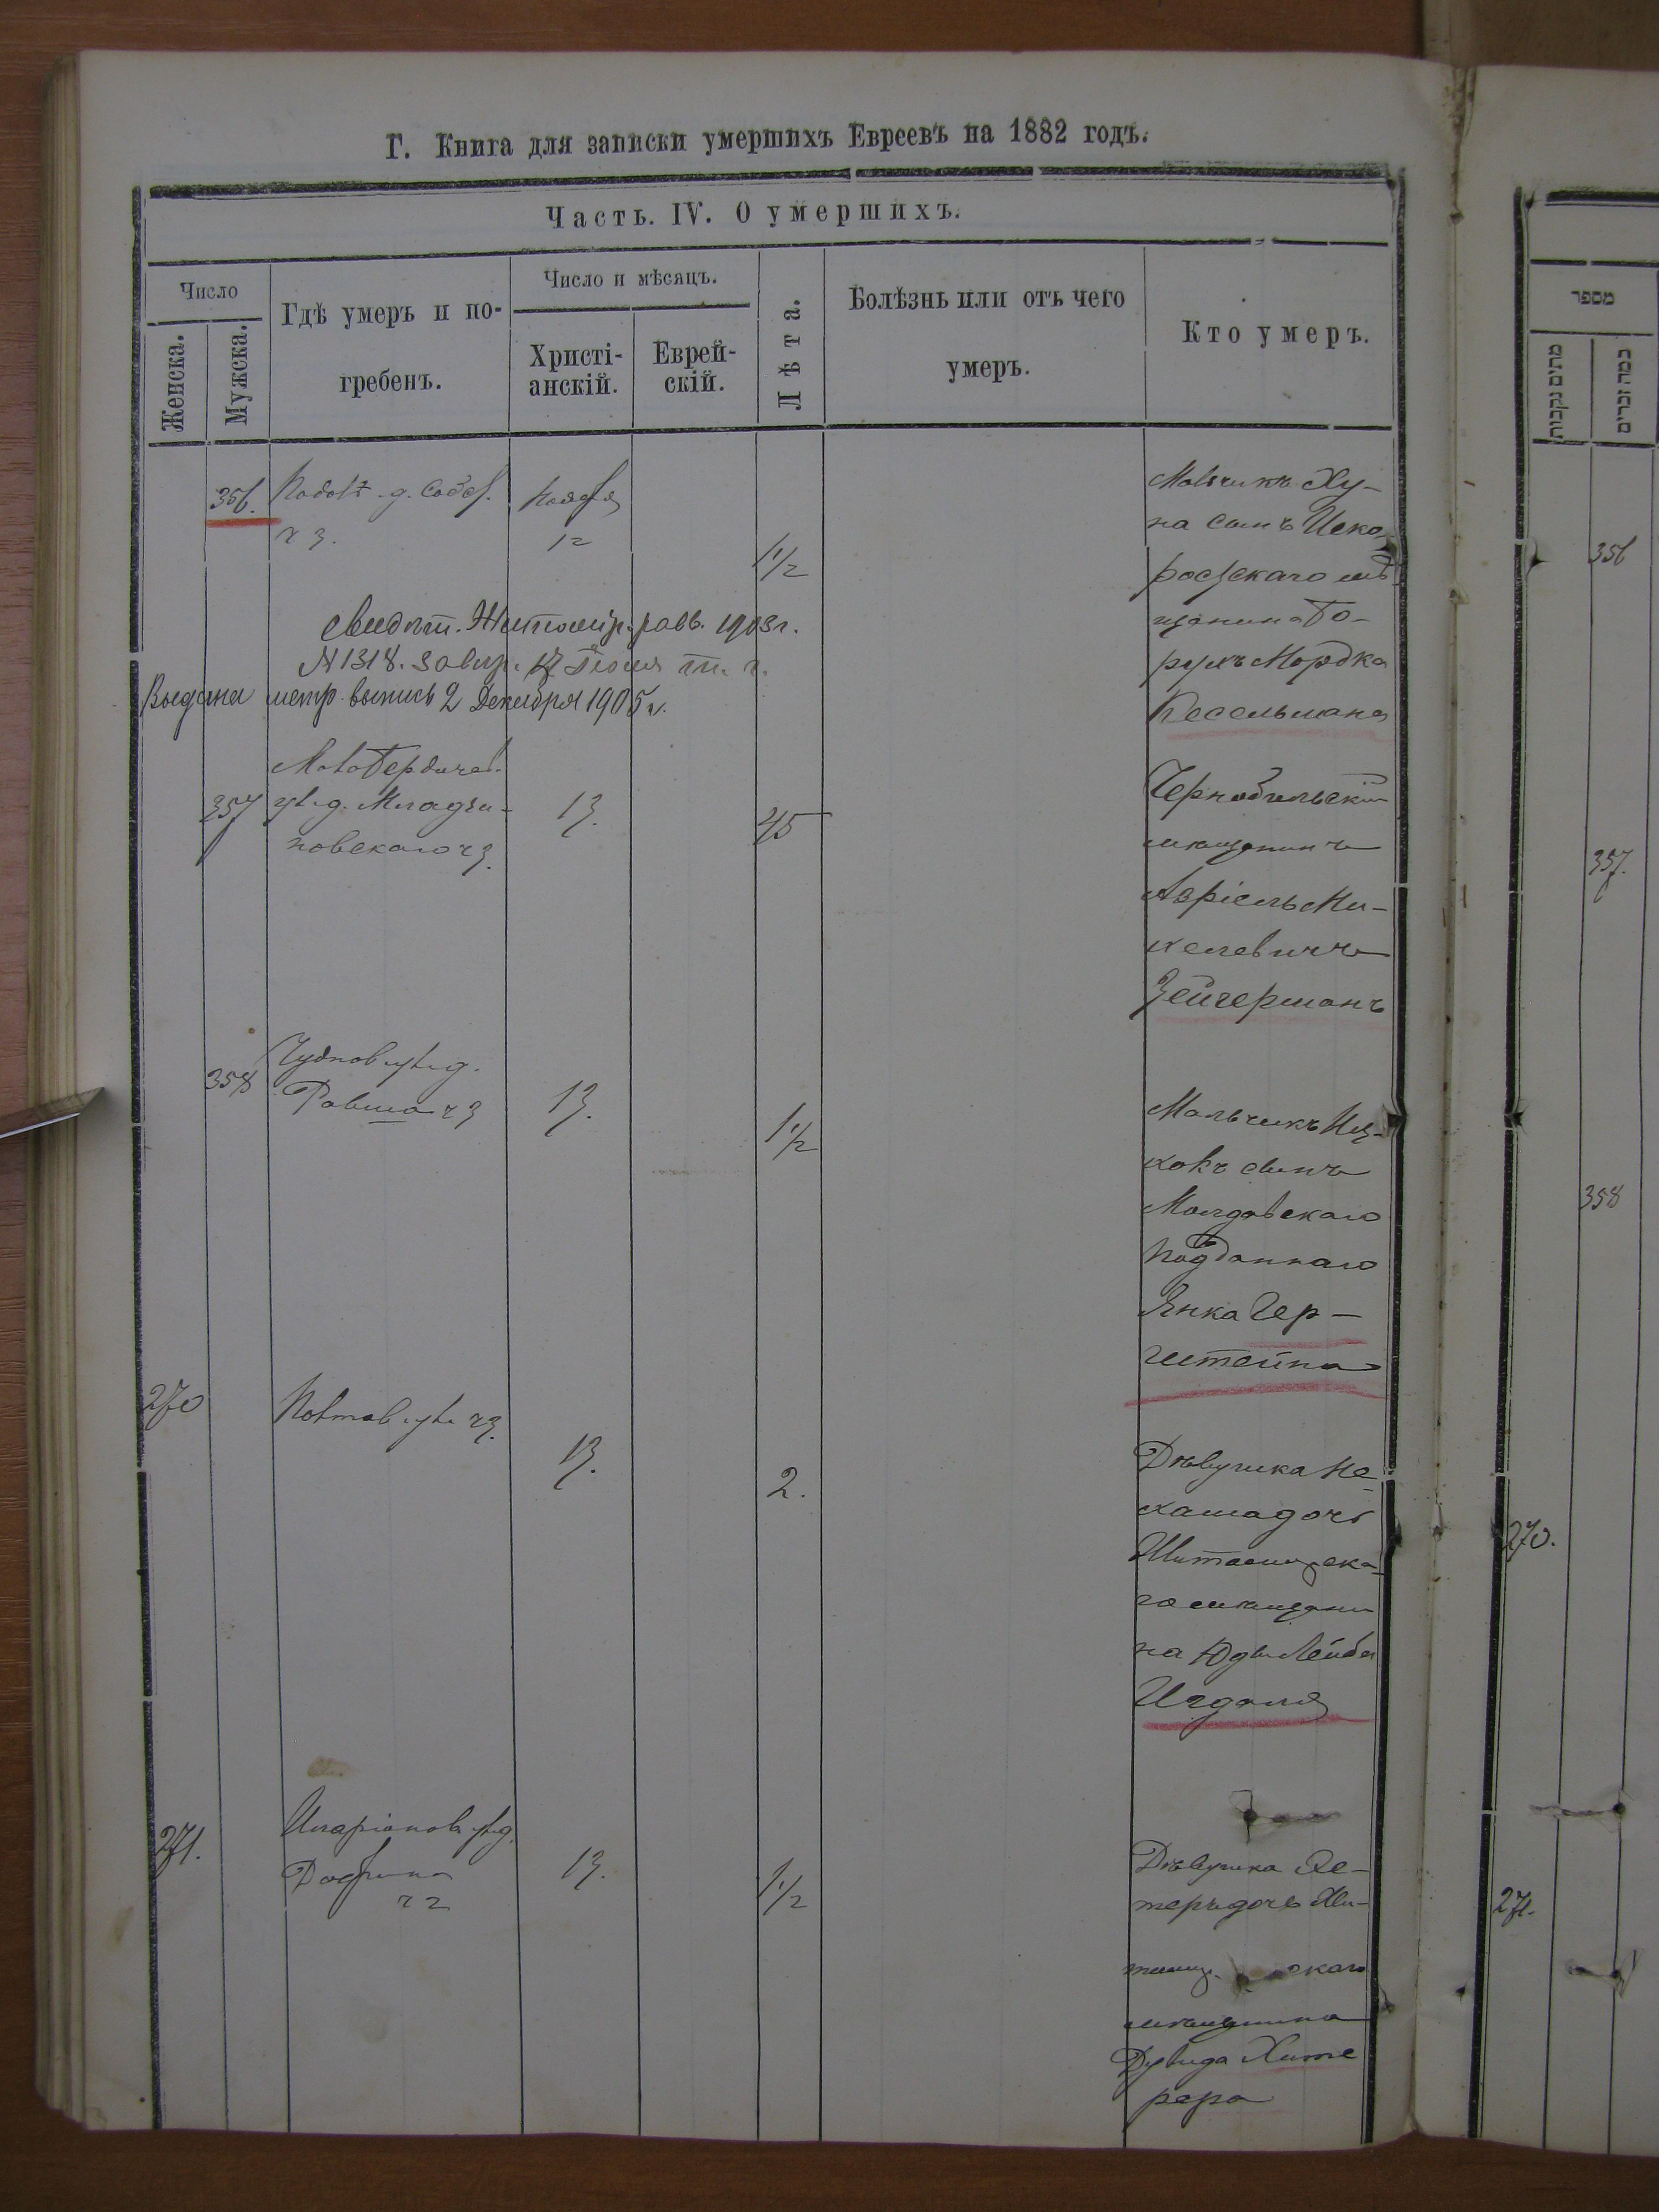 Г. Книга для записки умершихъ Евреевъ на 1882 годъ.
Часть. IV. О умершихъ.
Число
Женска.
Мужска.
Гдѣ умеръ и по-
гребенъ.
Число и мѣсяцъ.
Христі-
анскій.
Еврей-
скій.
Лѣта.
Болѣзнь или отъ чего
умеръ.
Кто умеръ.
356.
ч 3.
Ноября
12
1 1/2
Мальчикъ Ху-
на сынъ Иско-
росцскаго мѣ
щанина Бо-
рухъ Мордка
Кесельмана
свидѣт. Житомір. равв. 1903 г.
N 1318.
Выдана метр. выпись 2 Декабря 1905 г.
357
Мало Бердичев.
ул. д.
новскаго ч 3.
13.
45
Чернобыльскій
мѣщанинъ
Азріель Ми-
хелевичъ
Зейгерманъ
358
Чуднов. ул. д.
ч 3
13.
1 1/2
Мальчикъ Иц-
хокъ сынъ
Молдавскаго
подданнаго
Янка Гер-
штейна
270
ул. ч 3.
13.
2.
Дѣвушка Не
хама дочь
Житомирска-
го мѣщани
на Юды Лейбы
Игдаля
271.
Иларіонов. ул. д.
ч 2
13.
1 1/2
Дѣвушка Эс-
теръ дочь Жи-
скаго
мѣщанина
Дувида Хите
рера
מספר
מתים נקבות
כמה זכרים
356
357.
358
270.
271.